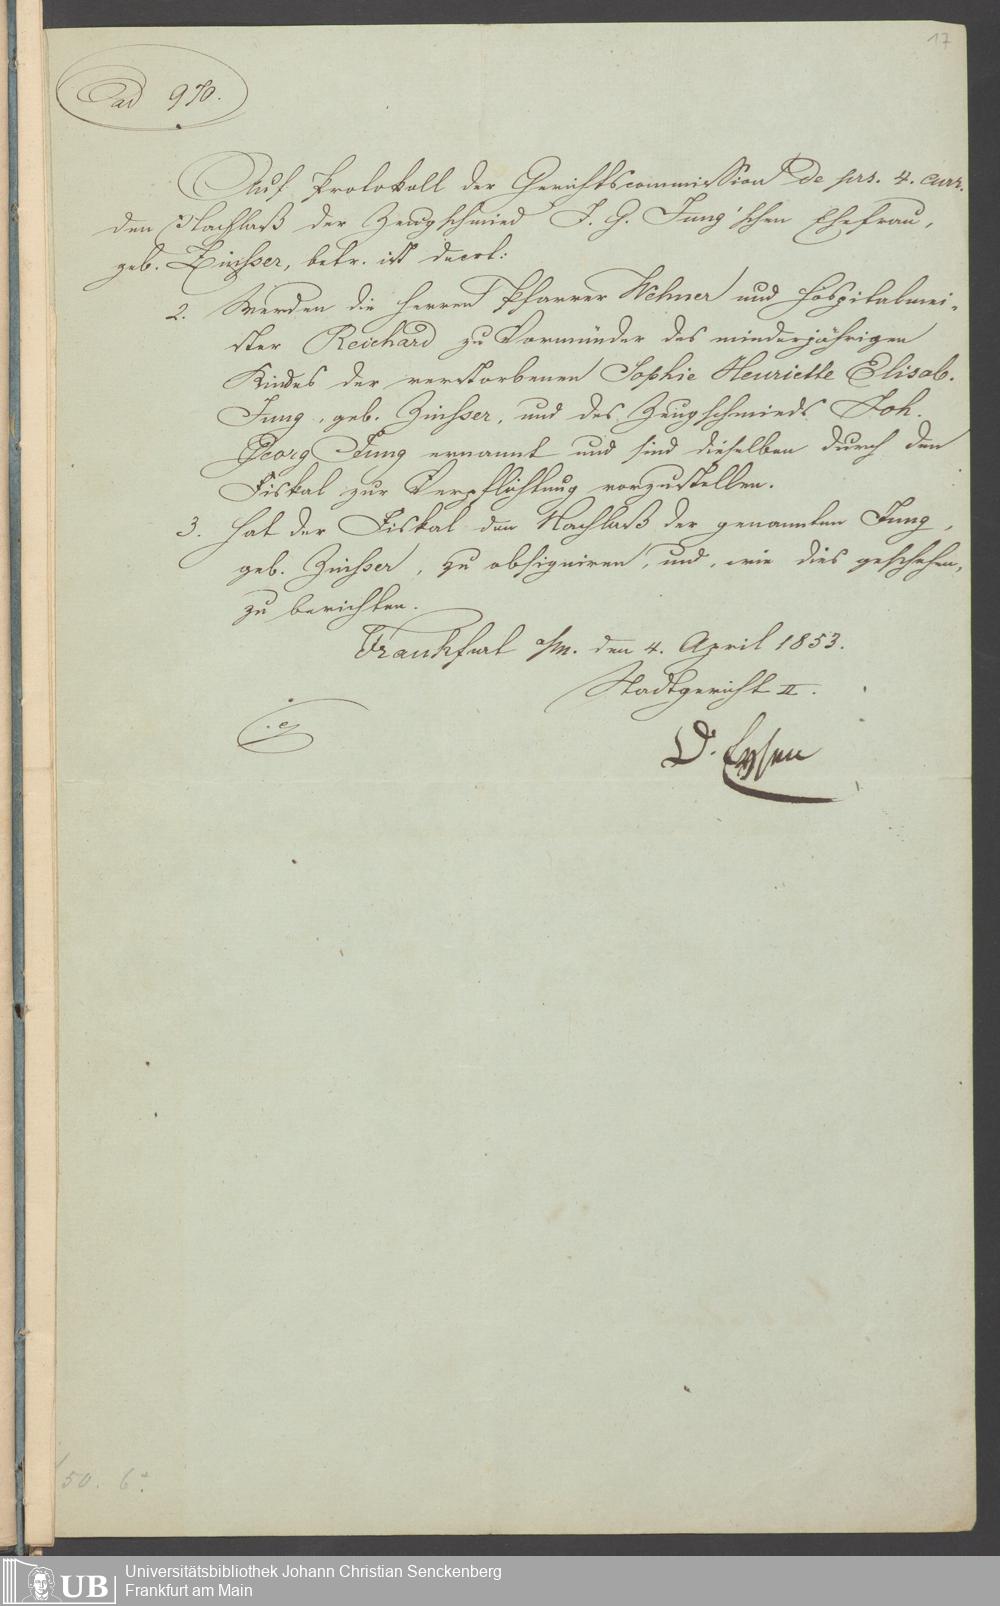 17
ad 970.
Auf Protokoll der Gerichtscommission de prs. 4. curr.
den Nachlaß der Zeugschmied J. G. Jung'schen Ehefrau,
geb. Zinsser, betr. ist decret:
2. Werden die Herren Pfarrer Wehner und Hospitalmei-
ster Reichard zu Vormünder des minderjährigen
Kindes der verstorbenen Sophie Henriette Elisab.
Jung, geb. Zinsser, und des Zeugschmieds Joh.
Georg Jung ernannt und sind dieselben durch den
Fiskal zur Verpflichtung vorzustellen.
3. Hat der Fiskal den Nachlaß der genannten Jung,
geb. Zinsser, zu obsigniren, und, wie dies geschehen,
zu berichten.
Frankfurt a/m. den 4. April 1853.
Stadtgericht II.
Dr. Eysen
50. 6
UB
Universitätsbibliothek Johann Christian Senckenberg
Frankfurt am Main